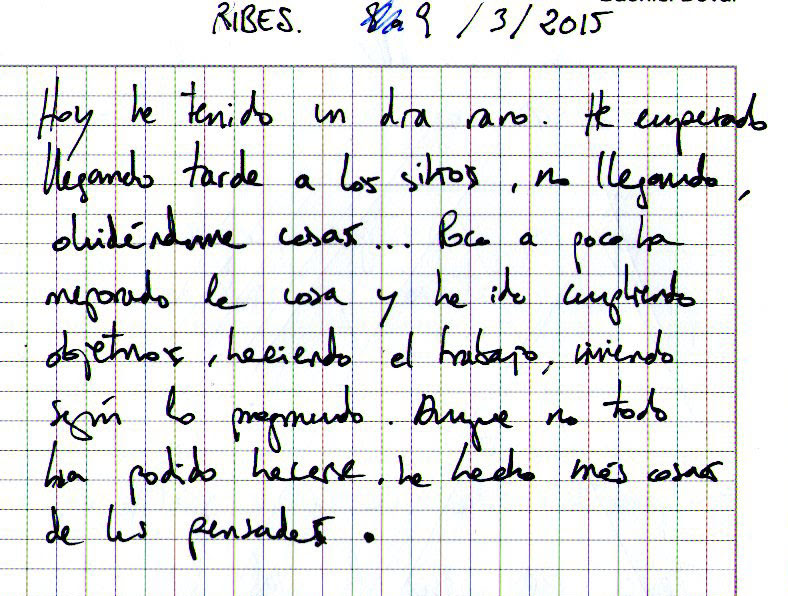 RIBES. 9 / 3 / 2015
Hoy he tenido un día raro. He empezado
llegando tarde a los sitios, no llegando,
olvidándome cosas... Poco a poco ha
mejorado la cosa y he ido cumpliendo
objetivos, haciendo el trabajo, viviendo
según lo programado. Aunque no todo
ha podido hacerse, he hecho más cosas
de las pensadas.